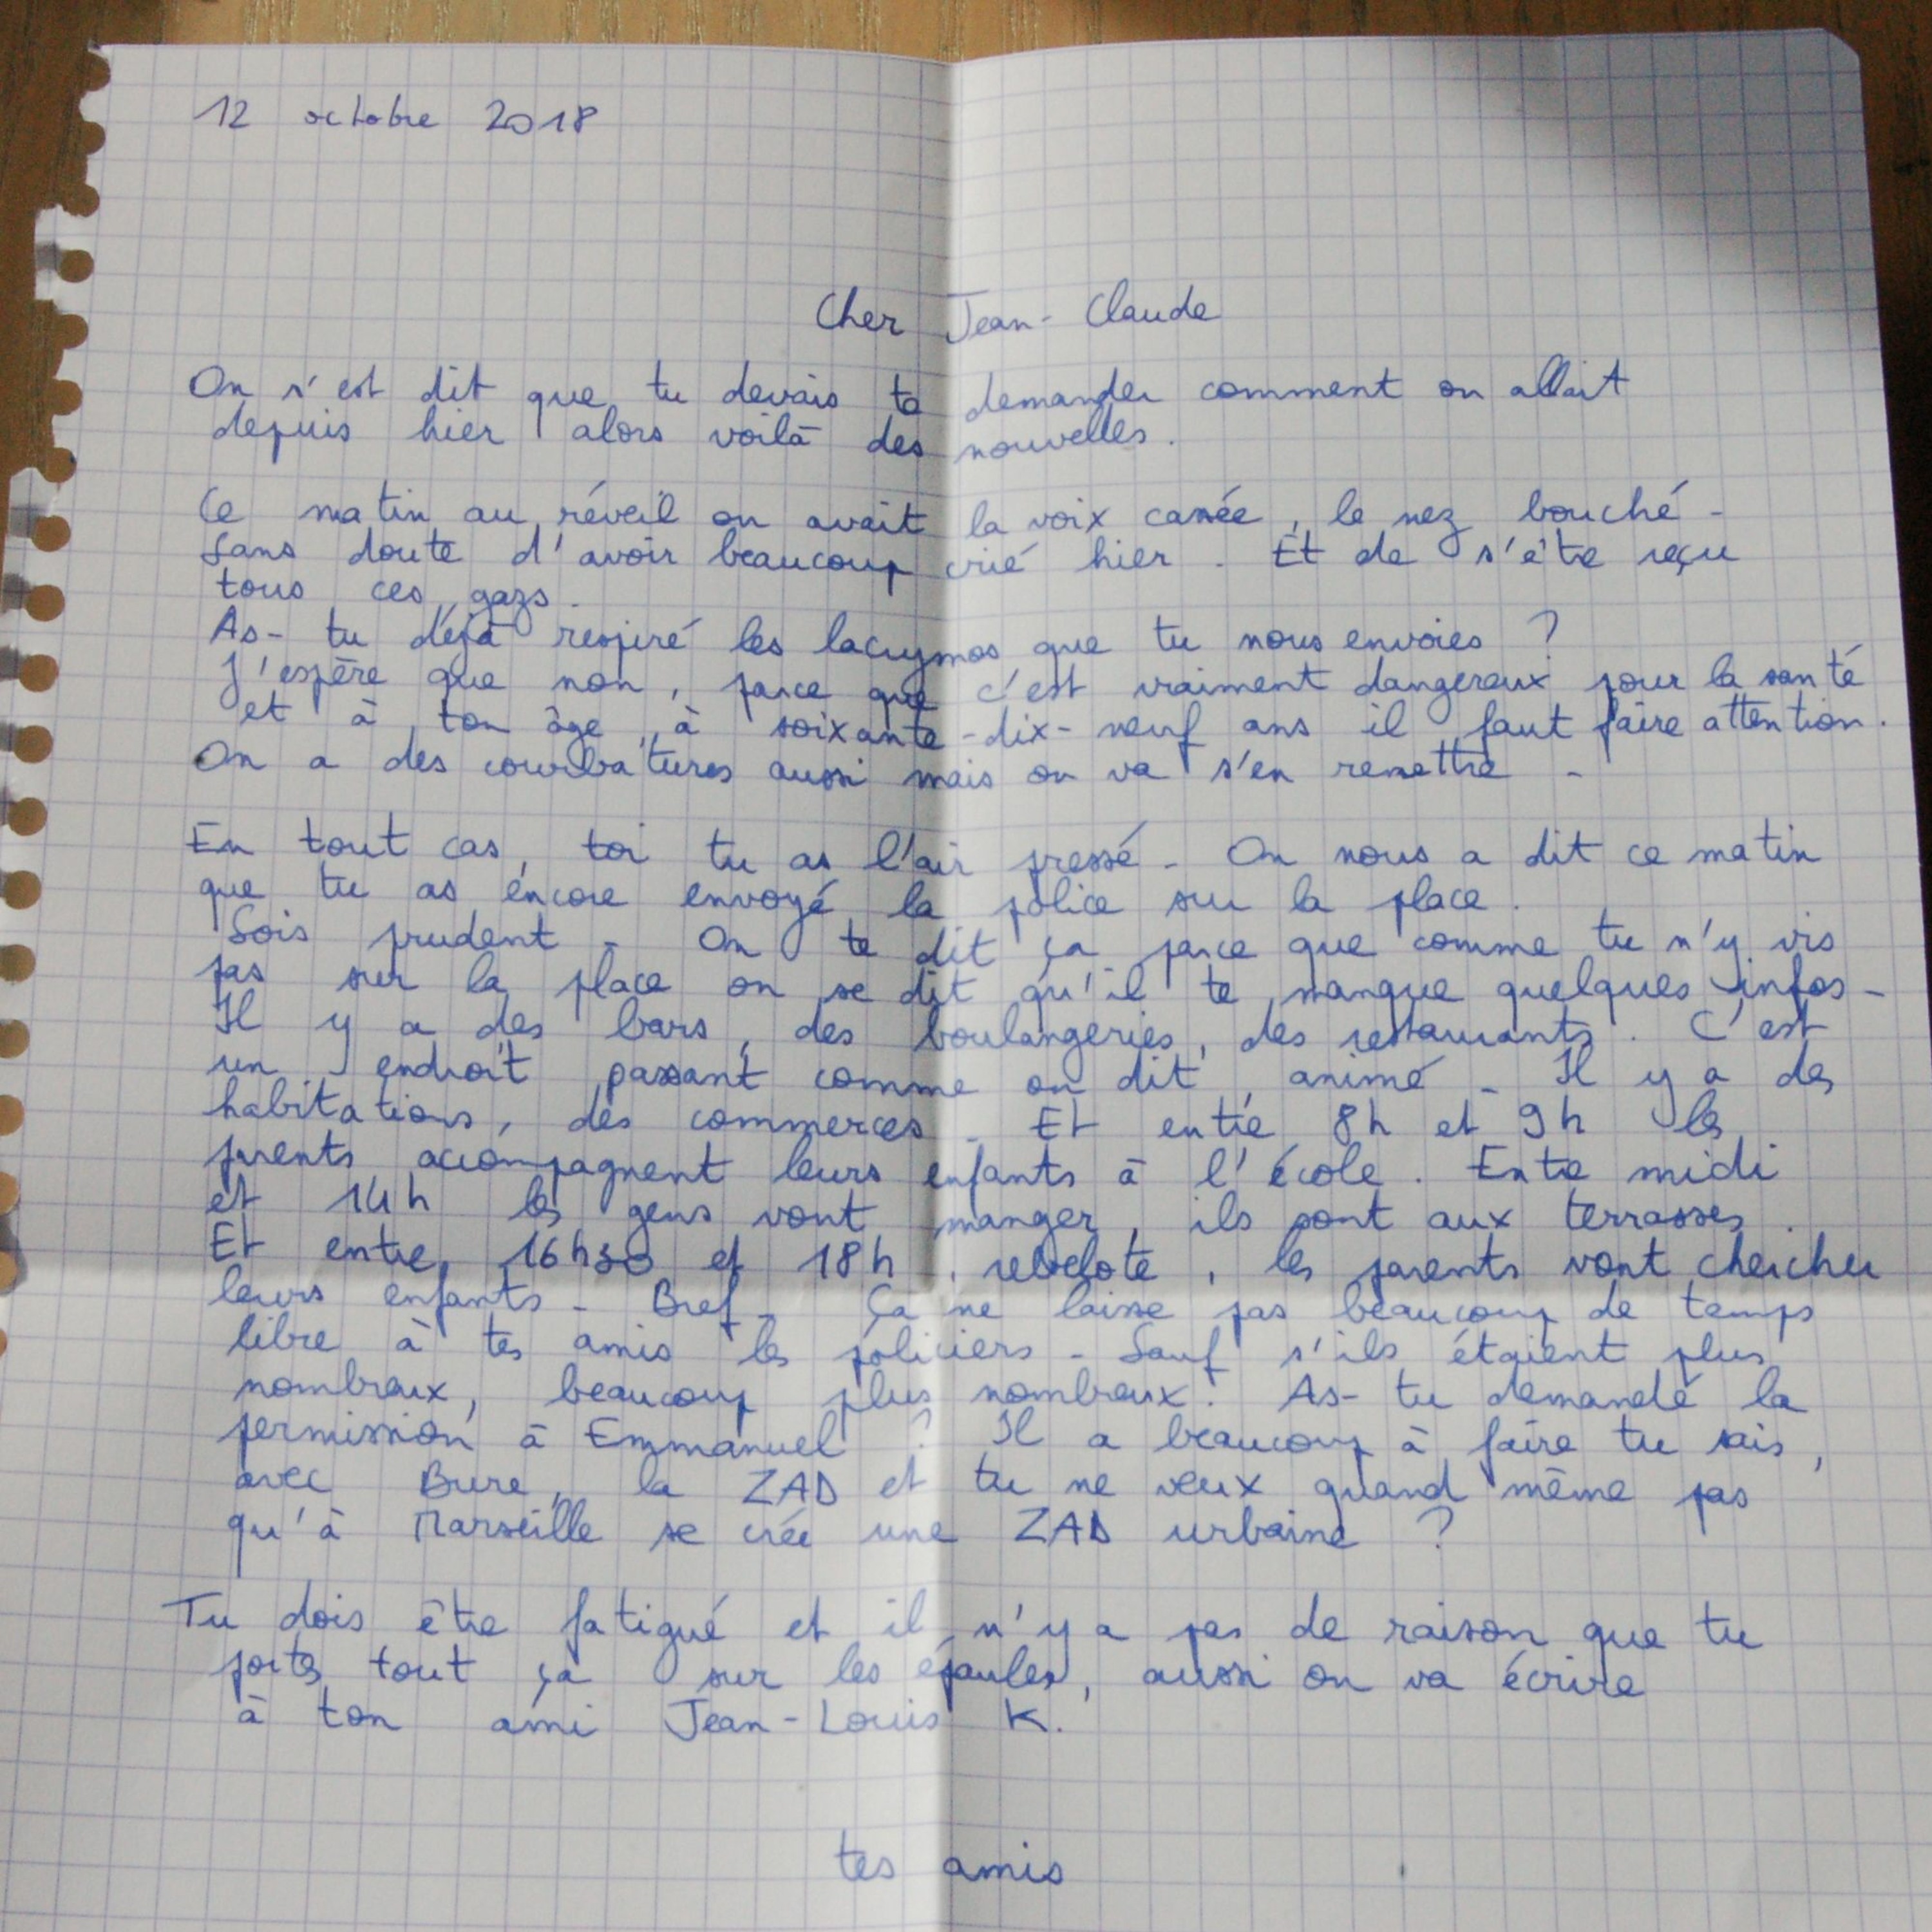 12 octobre 2018
Cher Jean-Claude
On s'est dit que tu devais te demander comment on allait
depuis hier alors voilà des nouvelles.
Ce matin au réveil on avait la voix cassée, le nez bouché.
Sans doute d'avoir beaucoup crié hier. Et de s'être reçu
tous ces gazs.
As-tu déjà respiré les lacrymos que tu nous envoies ?
J'espère que non, parce que c'est vraiment dangereux pour la santé
et à ton âge, à soixante-dix-neuf ans il faut faire attention.
On a des courbatures aussi mais on va s'en remettre.
En tout cas, toi tu as l'air pressé. On nous a dit ce matin
que tu as encore envoyé la police sur la place.
Sois prudent. On te dit ça parce que comme tu n'y vis
pas sur la place on se dit qu'il te manque quelques infos.
Il y a des bars, des boulangeries, des restaurants. C'est
un endroit passant comme on dit, animé. Il y a des
habitations, des commerces. Et entre 8h et 9h les
parents accompagnent leurs enfants à l'école. Entre midi
et 14h les gens vont manger, ils sont aux terrasses.
Et entre 16h30 et 18h, rebelote, les parents vont chercher
leurs enfants. Bref. Ça ne laisse pas beaucoup de temps
libre à tes amis les policiers. Sauf s'ils étaient plus
nombreux, beaucoup plus nombreux. As-tu demandé la
permission à Emmanuel ? Il a beaucoup à faire tu sais,
avec Bure, la ZAD et tu ne veux quand même pas
qu'à Marseille se crée une ZAD urbaine ?
Tu dois être fatigué et il n'y a pas de raison que tu
portes tout ça sur les épaules, aussi on va écrire
à ton ami Jean-Louis K.
tes amis